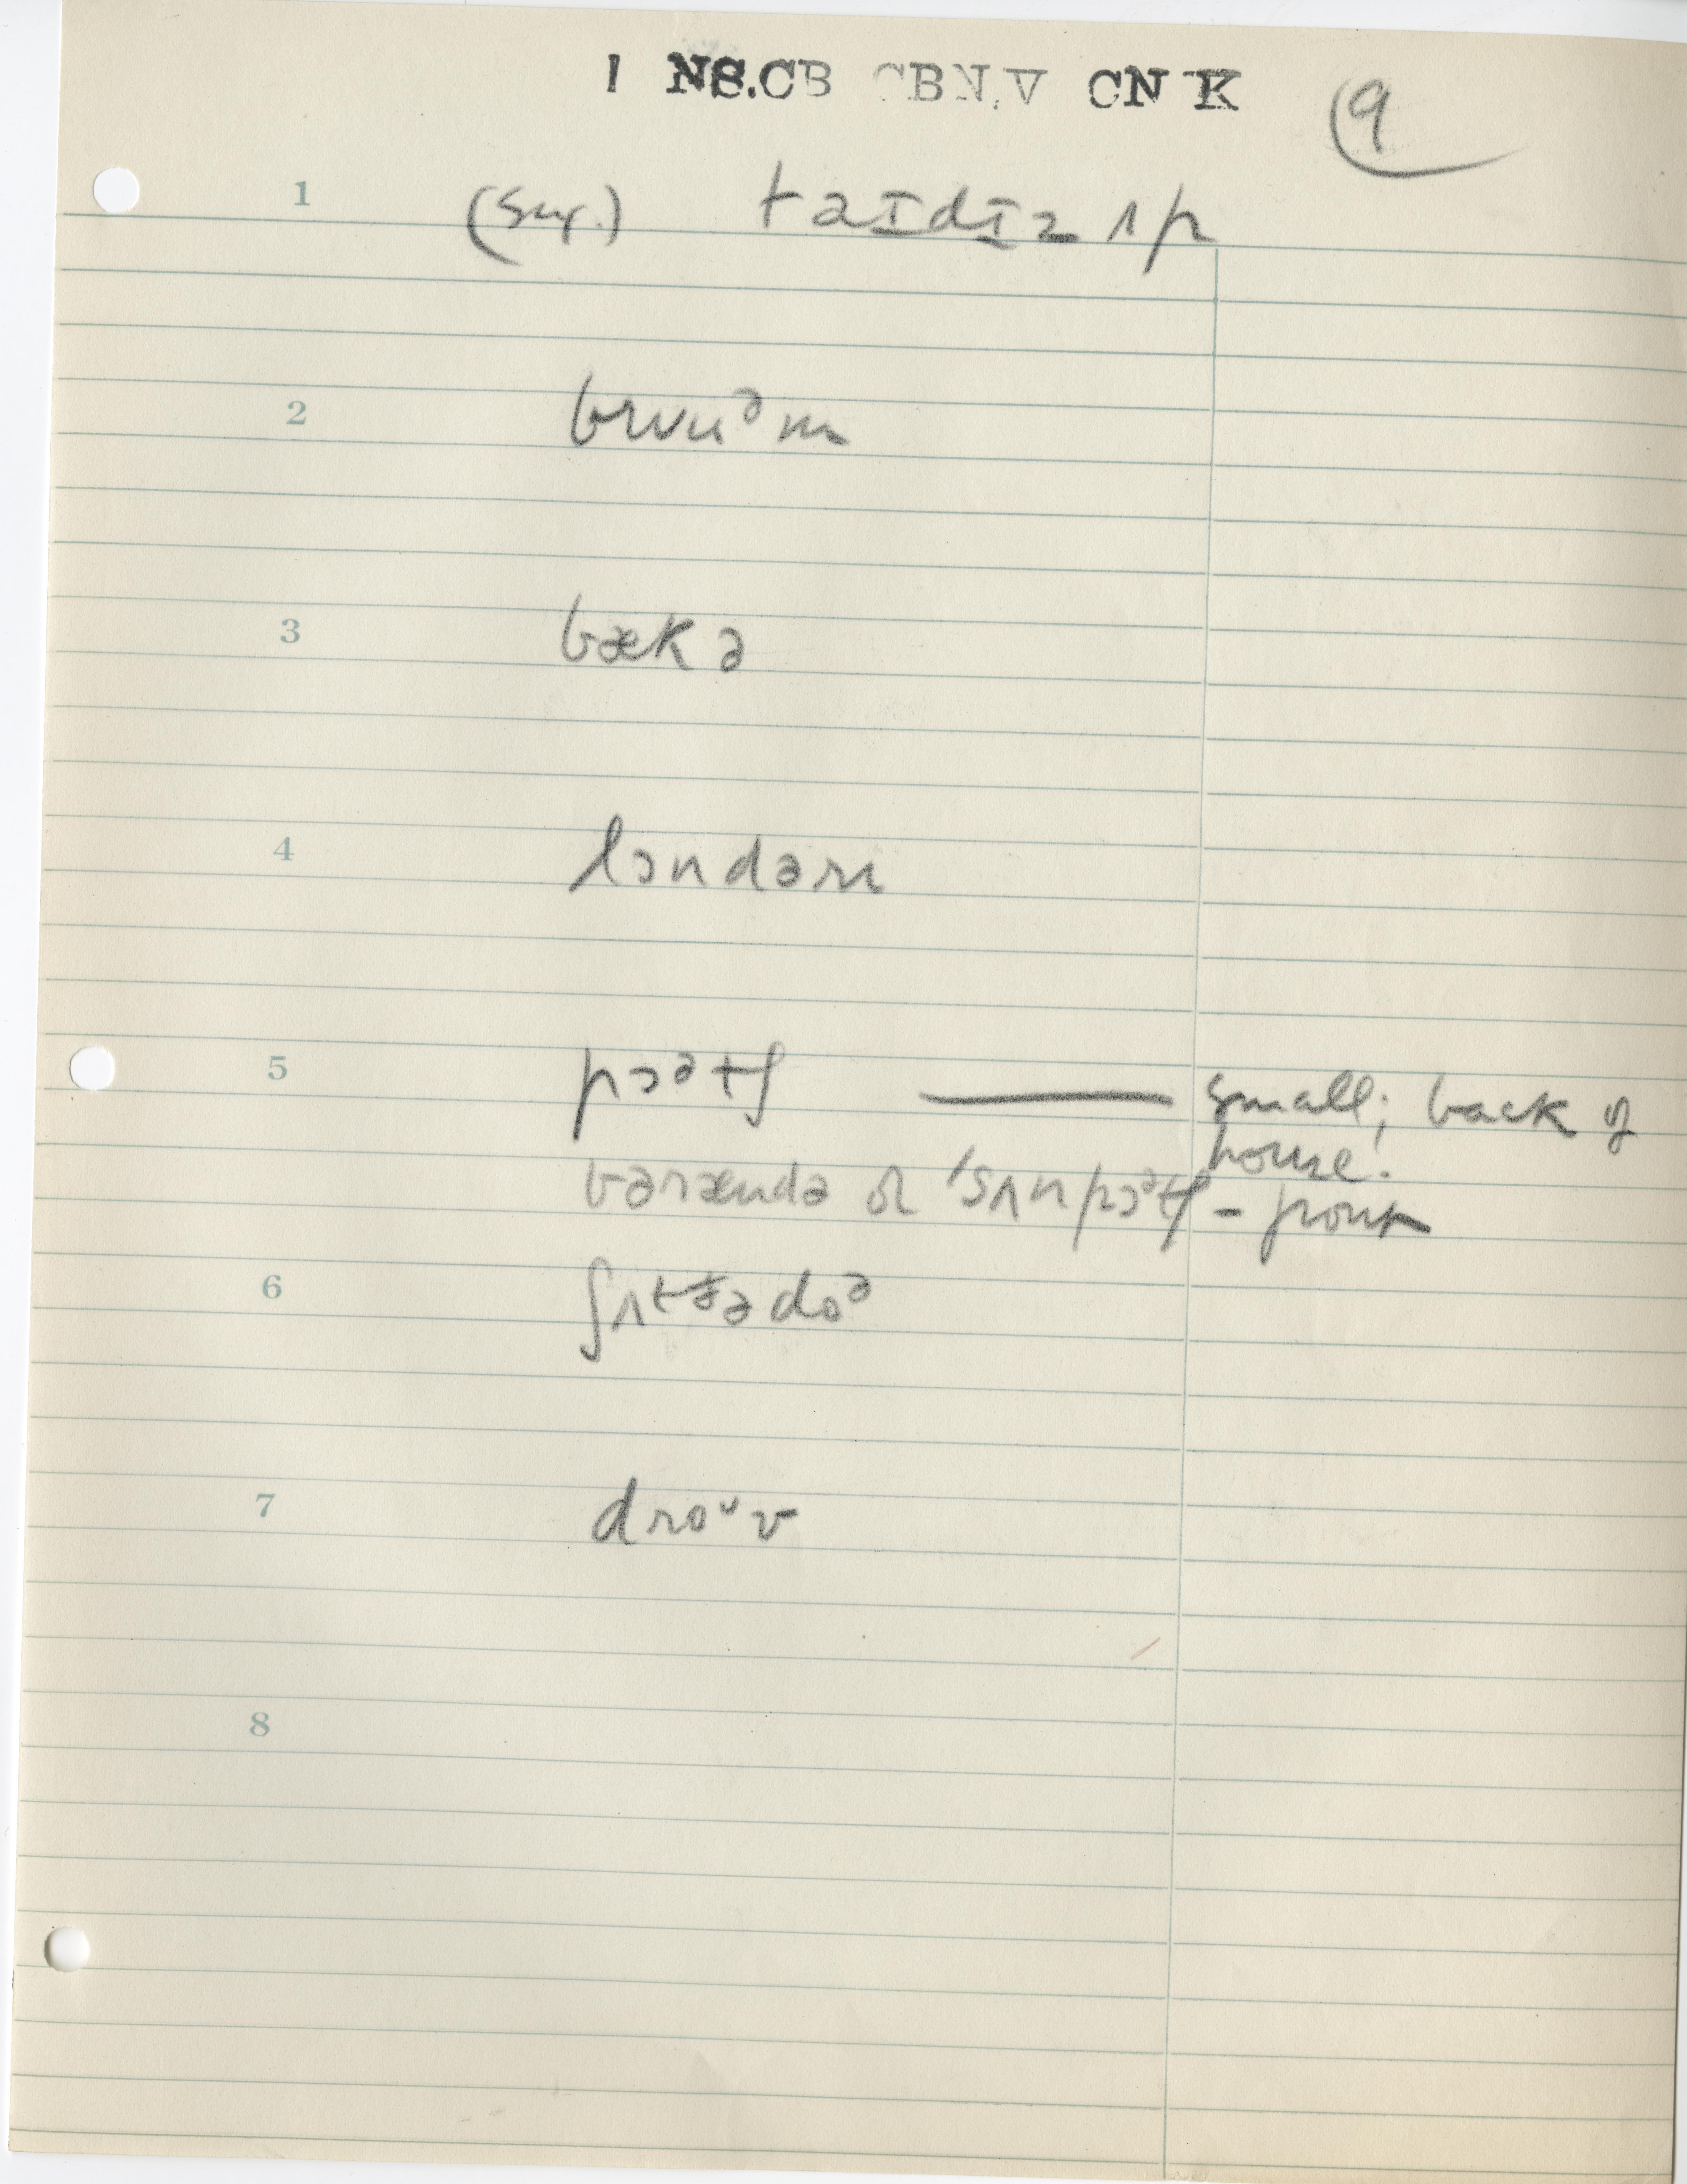 1 NS.CB CBN.V CN K
9
1 (Sug.) taɪdɪz ʌp
2 brvuᵊm
3 bækə
4 lɔndərɪ
5 pɔᵊtʃ —— small; back of
house.
bərændə or 'sʌnpɔᵊtʃ - front
6 ʃʌt ðə doᵊ
7 droᵘv
8